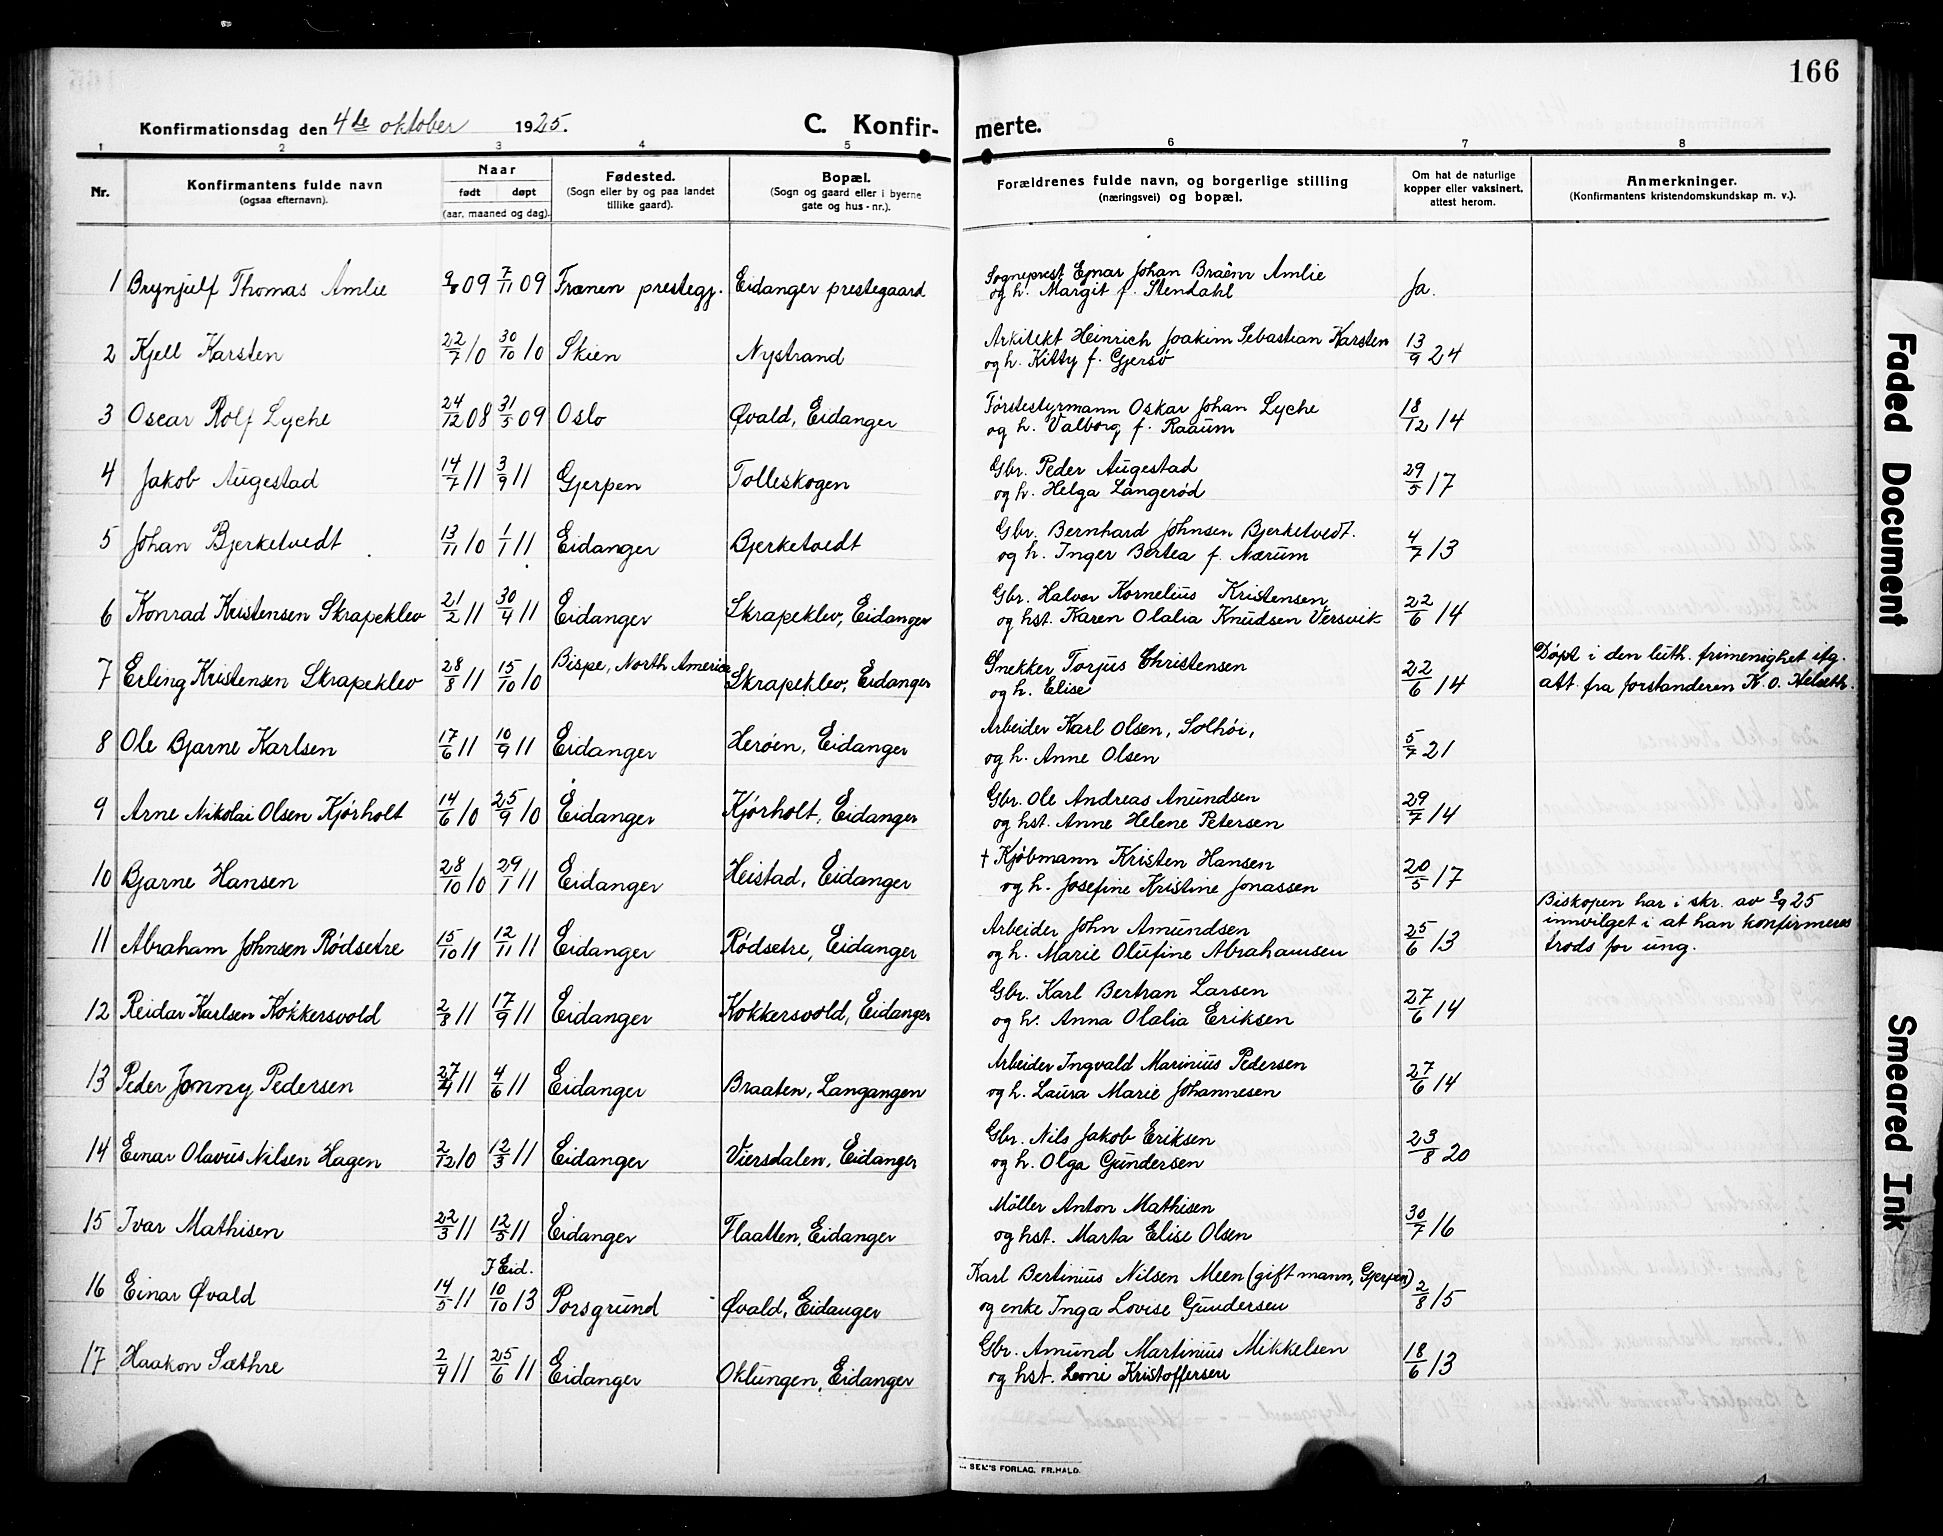 166
Konfirmationsdag den 4de oktober 1925.
C. Konfir-
merte.
1 2 3 4 5 6 7 8
Nr. Konfirmantens fulde navn (ogsaa efternavn). Naar født døpt (aar, maaned og dag). Fødested. (Sogn eller by og paa landet tillike gaard). Bopæl. (Sogn og gaard eller i byerne gate og hus-nr.). Forældrenes fulde navn, og borgerlige stilling (næringsvei) og bopæl. Om hat de naturlige kopper eller vaksinert, attest herom. Anmerkninger. (Konfirmantens kristendomskundskap m. v.).
1 Brynjulf Thomas Amlie 9/8 09 7/11 09 Frænen prestegj. Eidanger prestegaard Sogneprest Ejnar Johan Braënr Amlie
og h. Margit f. Stendahl Ja.
2 Kjell Karsten 22/7 10 30/10 10 Skien Nystrand Arkitekt Heinrich Joakim Sebastian Karsten
og h. Kitty f. Gjersö 13/9 24
3 Oscar Rolf Lyche 24/12 08 31/5 09 Oslo Øvald, Eidanger Førstestyrmann Oskar Johan Lyche
og h. Valborg f. Raaum 18/12 14
4 Jakob Augestad 14/7 11 3/9 11 Gjerpen Tolleskogen Gbr. Peder Augestad
og h. Helga Langerød 29/5 17
5 Johan Bjerketvedt 13/11 10 1/1 11 Eidanger Bjerketvedt Gbr. Bernhard Johnsen Bjerketvedt.
og h. Inger Bertea f. Nærum 4/7 13
6 Konrad Kristensen Skrapeklev 21/2 11 30/4 11 Eidanger Skrapeklev, Eidanger Gbr. Halvor Kornelius Kristensen
og hst. Karen Olalia Knudsen Versvik 22/6 14
7 Erling Kristensen Skrapeklev 28/8 11 15/10 10 Bispe, North America Skrapeklev, Eidanger Snekker Torjus Christensen
og h. Elise 22/6 14 Döpt i den luth. frimenighet itg.
att. fra forstanderen K. O. Helseth.
8 Ole Bjarne Karlsen 17/6 11 10/9 11 Eidanger Heröen, Eidanger Arbeider Karl Olsen, Solhöi,
og h. Anne Olsen 5/7 21
9 Arne Nikolai Olsen Kjörholt 14/6 10 25/9 10 Eidanger Kjörholt, Eidanger Gbr. Ole Andreas Anundsen
og hst. Anne Helene Petersen 29/7 14
10 Bjarne Hansen 28/10 10 29/1 11 Eidanger Heistad, Eidanger † Kjöbmann Kristen Hansen
og h. Josefine Kristine Jonassen 20/5 17
11 Abraham Johnsen Rödsetre 15/10 11 12/11 11 Eidanger Rödsetre, Eidanger Arbeider John Amundsen
og h. Marie Olufine Abrahamsen 25/6 13 Biskopen har i skr. av 8/9 25
innvilget i at han konfirmeres
trods for ung.
12 Reidar Karlsen Kokkersvold 2/8 11 17/9 11 Eidanger Kokkersvold, Eidanger Gbr. Karl Bertran Larsen
og h. Anna Olalia Eriksen 27/6 14
13 Peder Jonny Pedersen 27/4 11 4/6 11 Eidanger Braaten, Langangen Arbeider Ingvald Marinius Pedersen
og h. Laura Marie Johannesen 27/6 14
14 Einar Olavus Nilsen Hagen 2/12 10 12/3 11 Eidanger Viersdalen, Eidanger Gbr. Nils Jakob Eriksen
og h. Olga Gundersen 23/8 20
15 Ivar Mathisen 22/3 11 12/5 11 Eidanger Flaatten, Eidanger Möller Anton Mathisen
og hst. Marta Elise Olsen 30/7 16
16 Einar Øvald 14/5 11 I Eid. 10/10 13 Porsgrund Øvald, Eidanger Karl Bertinius Nilsen Meen (gift mann, Gjerpen)
og enke Inga Lovise Gundersen 2/8 15
17 Haakon Sæthre 2/4 11 25/6 11 Eidanger Oklungen, Eidanger Gbr. Amund Martinius Mikkelsen
og hst. Leoni Kristoffersen 18/6 13
SEM'S FORLAG, FR.HALD.
Faded Document
Smeared Ink